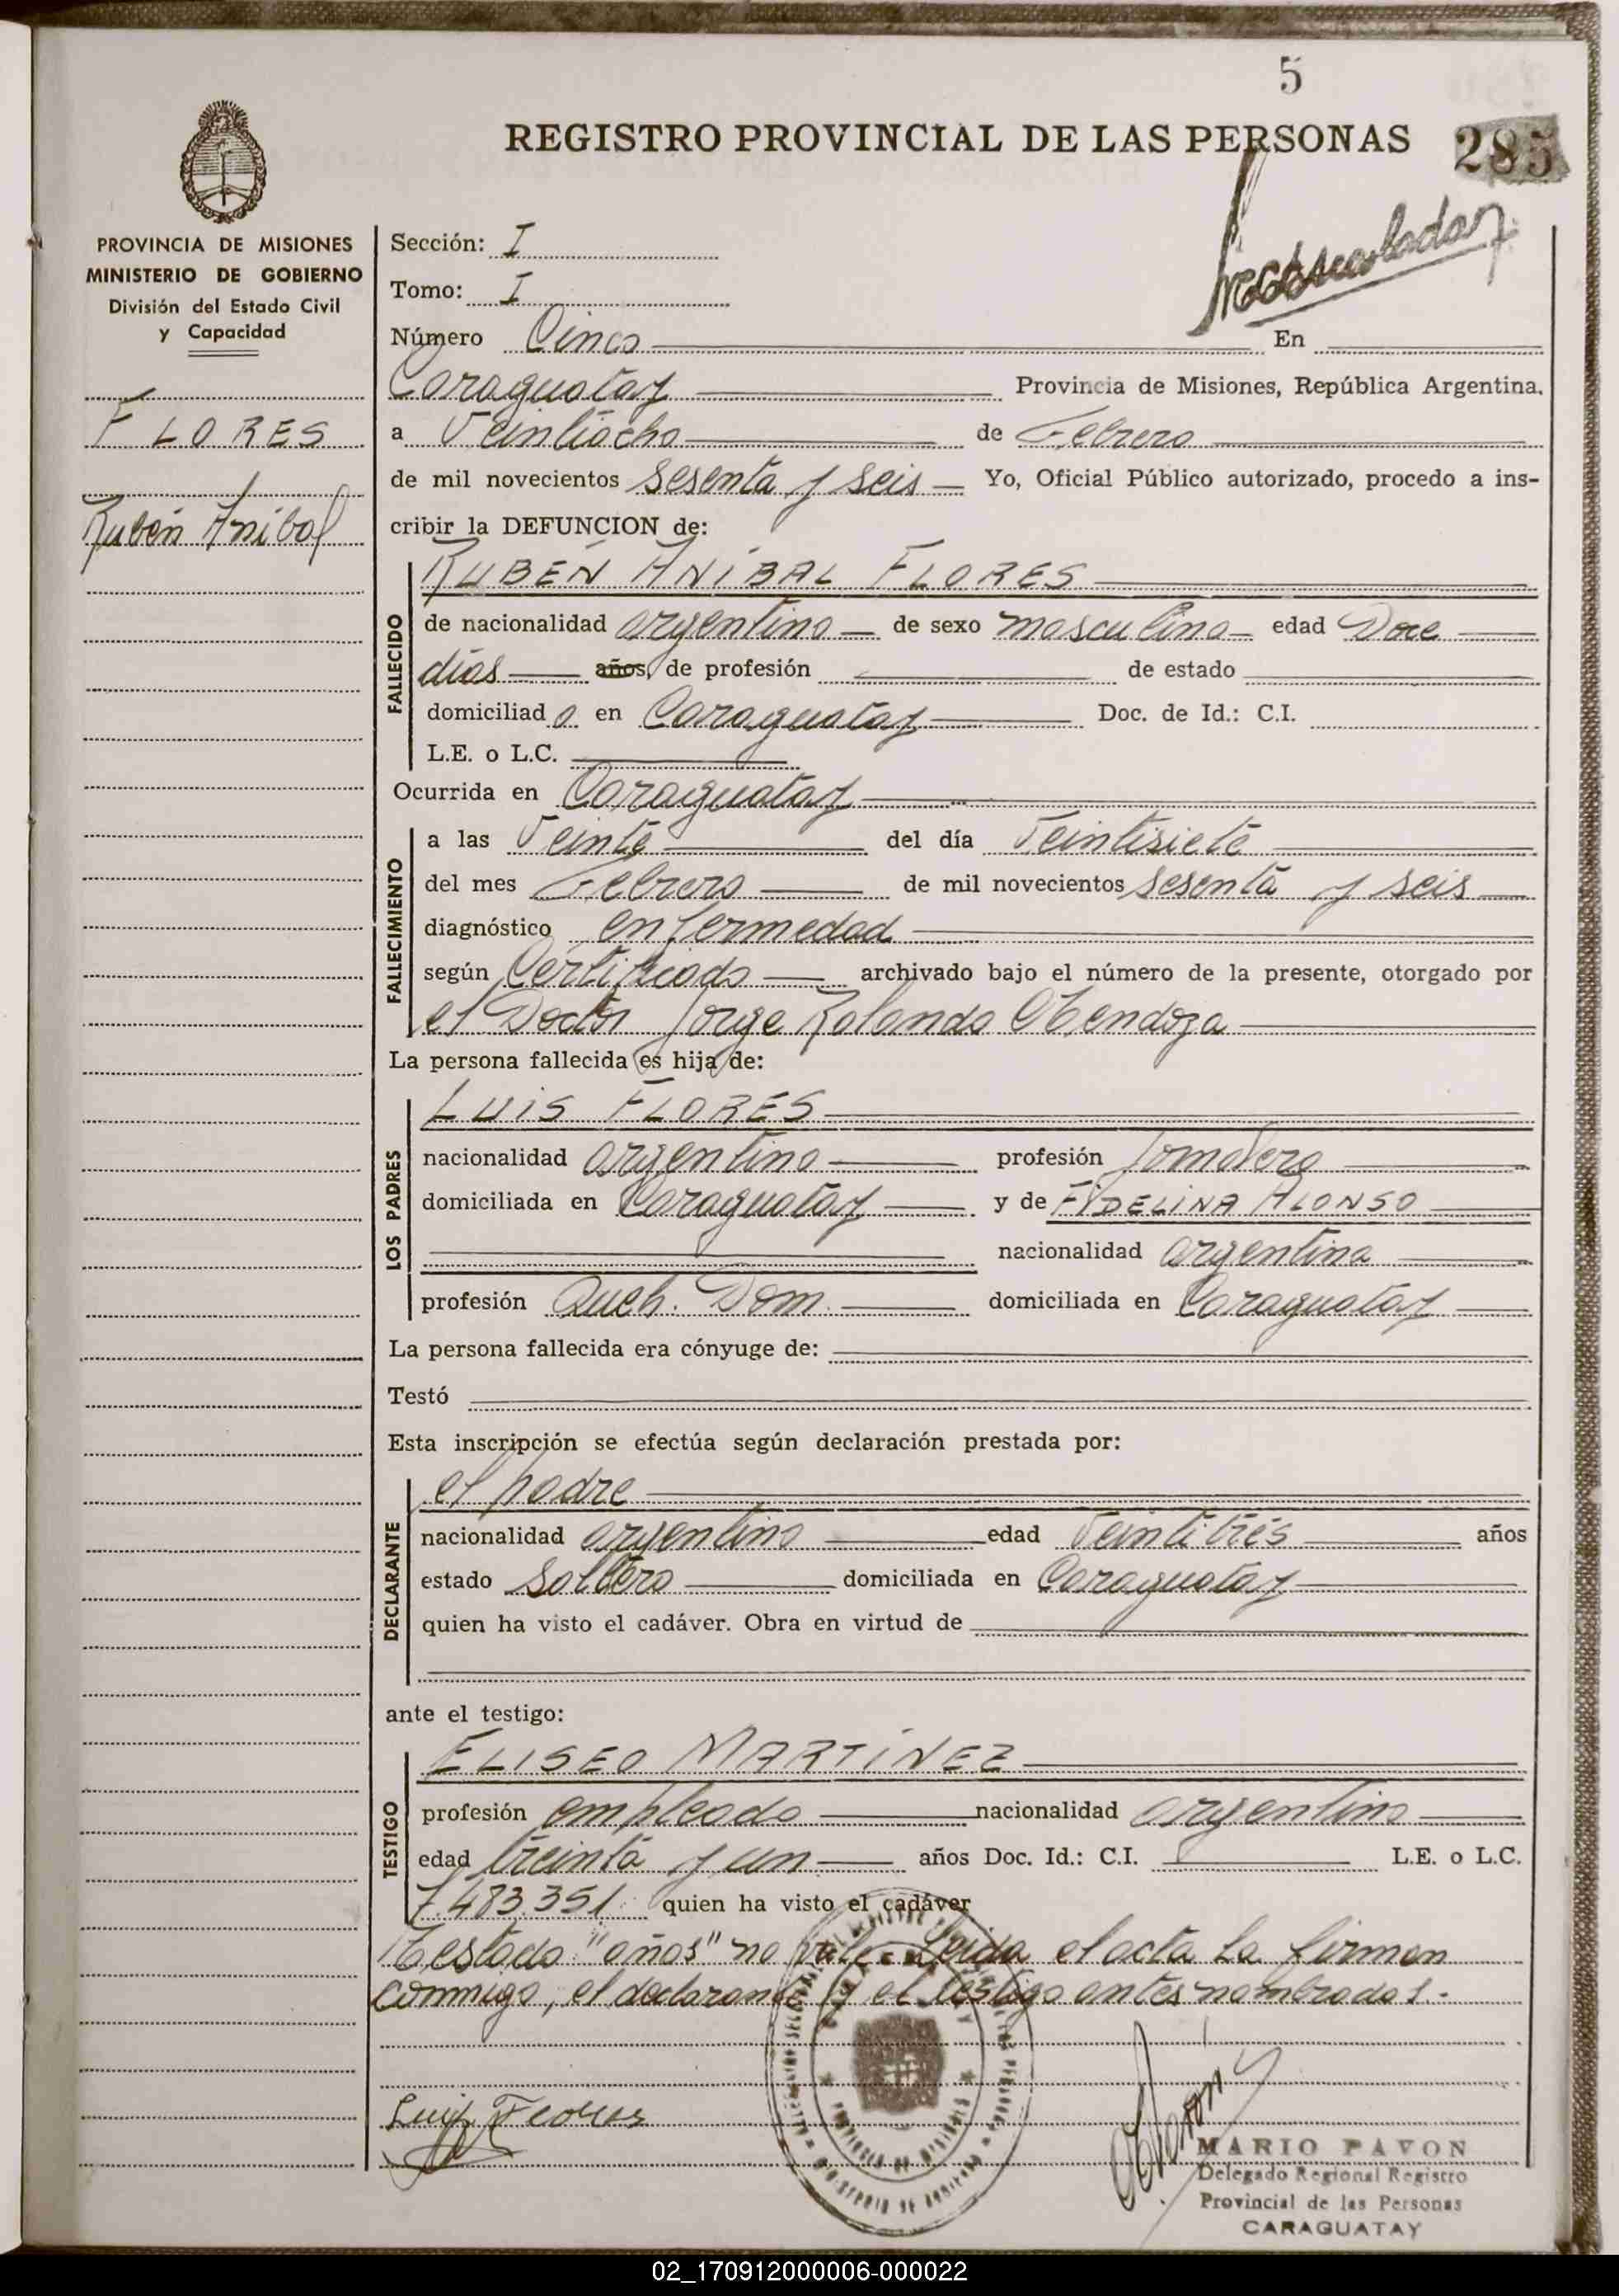 5
REGISTRO PROVINCIAL DE LAS PERSONAS
285
PROVINCIA DE MISIONES
MINISTERIO DE GOBIERNO
División del Estado Civil
y Capacidad
FLORES
Rubén Aníbal
Sección: I
Tomo: I
Número Cinco En
Caraguatay Provincia de Misiones, República Argentina.
a Veintiocho de Febrero
de mil novecientos sesenta y seis Yo, Oficial Público autorizado, procedo a ins-
cribir la DEFUNCION de:
FALLECIDO
RUBÉN ANÍBAL FLORES
de nacionalidad argentino de sexo masculino edad Doce
días años, de profesión de estado
domiciliado en Caraguatay Doc. de Id.: C.I.
L.E. o L.C.
Ocurrida en Caraguatay
FALLECIMIENTO
a las Veinte del día Veintisiete
del mes Febrero de mil novecientos sesenta y seis
diagnóstico enfermedad
según Certificado archivado bajo el número de la presente, otorgado por
el Doctor Jorge Rolando Mendoza
La persona fallecida es hija de:
LOS PADRES
LUIS FLORES
nacionalidad argentino profesión Jornalero
domiciliada en Caraguatay y de FIDELINA ALONSO
nacionalidad argentina
profesión Queh. Dom. domiciliada en Caraguatay
La persona fallecida era cónyuge de:
Testó
Esta inscripción se efectúa según declaración prestada por:
DECLARANTE
el padre
nacionalidad argentino edad Veintitrés años
estado Soltero domiciliada en Caraguatay
quien ha visto el cadáver. Obra en virtud de
ante el testigo:
TESTIGO
ELISEO MARTÍNEZ
profesión empleado nacionalidad argentino
edad treinta y un años Doc. Id.: C.I. L.E. o L.C.
7.483.351 quien ha visto el cadáver
Testado "años" no vale. Leída el acta la firman
conmigo, el declarante y el testigo antes nombrados.-
Luis Flores
MARIO PAVON
Delegado Regional Registro
Provincial de las Personas
CARAGUATAY
02_170912000006-000022